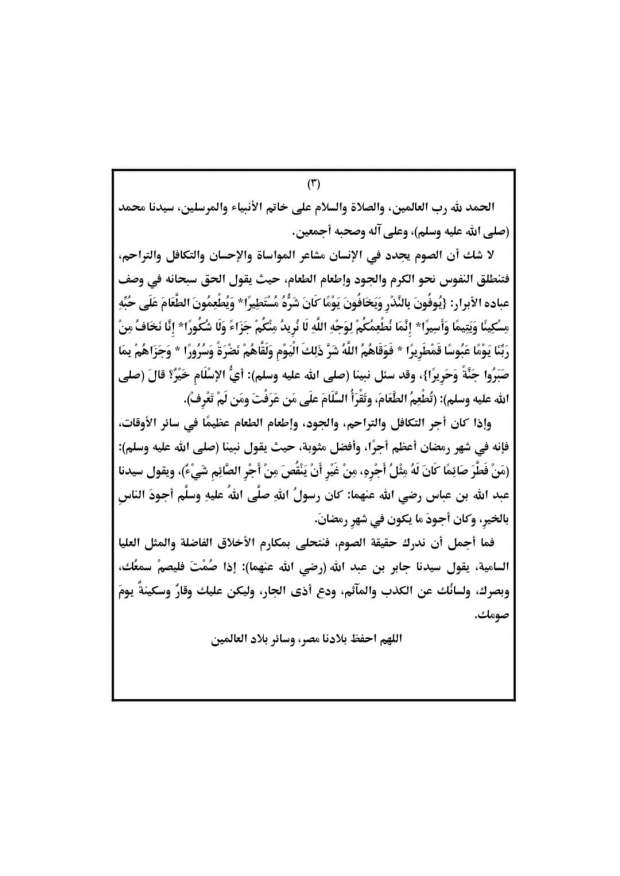 (٣)
الحمد لله رب العالمين، والصلاة والسلام على خاتم الأنبياء والمرسلين، سيدنا محمد
(صلى الله عليه وسلم)، وعلى آله وصحبه أجمعين.
لا شك أن الصوم يجدد في الإنسان مشاعر المواساة والإحسان والتكافل والتراحم،
فتنطلق النفوس نحو الكرم والجود وإطعام الطعام، حيث يقول الحق سبحانه في وصف
عباده الأبرار: {يُوفُونَ بِالنَّذْرِ وَيَخَافُونَ يَوْمًا كَانَ شَرُّهُ مُسْتَطِيرًا* وَيُطْعِمُونَ الطَّعَامَ عَلَى حُبِّهِ
مِسْكِينًا وَيَتِيمًا وَأَسِيرًا* إِنَّمَا نُطْعِمُكُمْ لِوَجْهِ اللَّهِ لَا نُرِيدُ مِنْكُمْ جَزَاءً وَلَا شُكُورًا* إِنَّا نَخَافُ مِنْ
رَبِّنَا يَوْمًا عَبُوسًا قَمْطَرِيرًا * فَوَقَاهُمُ اللَّهُ شَرَّ ذَلِكَ الْيَوْمِ وَلَقَّاهُمْ نَضْرَةً وَسُرُورًا * وَجَزَاهُمْ بِمَا
صَبَرُوا جَنَّةً وَحَرِيرًا}، وقد سئل نبينا (صلى الله عليه وسلم): أيُّ الإسْلَامِ خَيْرٌ؟ قالَ (صلى
الله عليه وسلم): (تُطْعِمُ الطَّعَامَ، وتَقْرَأُ السَّلَامَ علَى مَن عَرَفْتَ ومَن لَمْ تَعْرِفْ).
وإذا كان أجر التكافل والتراحم، والجود، وإطعام الطعام عظيمًا في سائر الأوقات،
فإنه في شهر رمضان أعظم أجرًا، وأفضل مثوبة، حيث يقول نبينا (صلى الله عليه وسلم):
(مَنْ فَطَّرَ صَائِمًا كَانَ لَهُ مِثْلُ أَجْرِهِ، مِنْ غَيْرِ أَنْ يَنْقُصَ مِنْ أَجْرِ الصَّائِمِ شَيْءٌ)، ويقول سيدنا
عبد الله بن عباس رضي الله عنهما: كان رسولُ اللهِ صلَّى اللهُ عليهِ وسلَّم أجودَ الناسِ
بالخيرِ، وكان أجودَ ما يكون في شهرِ رمضانَ.
فما أجمل أن ندرك حقيقة الصوم، فنتحلى بمكارم الأخلاق الفاضلة والمثل العليا
السامية، يقول سيدنا جابر بن عبد الله (رضي الله عنهما): إذا صُمْتَ فليصمْ سمعُك،
وبصرك، ولسانُك عن الكذب والمآثم، ودع أذى الجار، وليكن عليك وقارٌ وسكينةٌ يومَ
صومك.
اللهم احفظ بلادنا مصر، وسائر بلاد العالمين